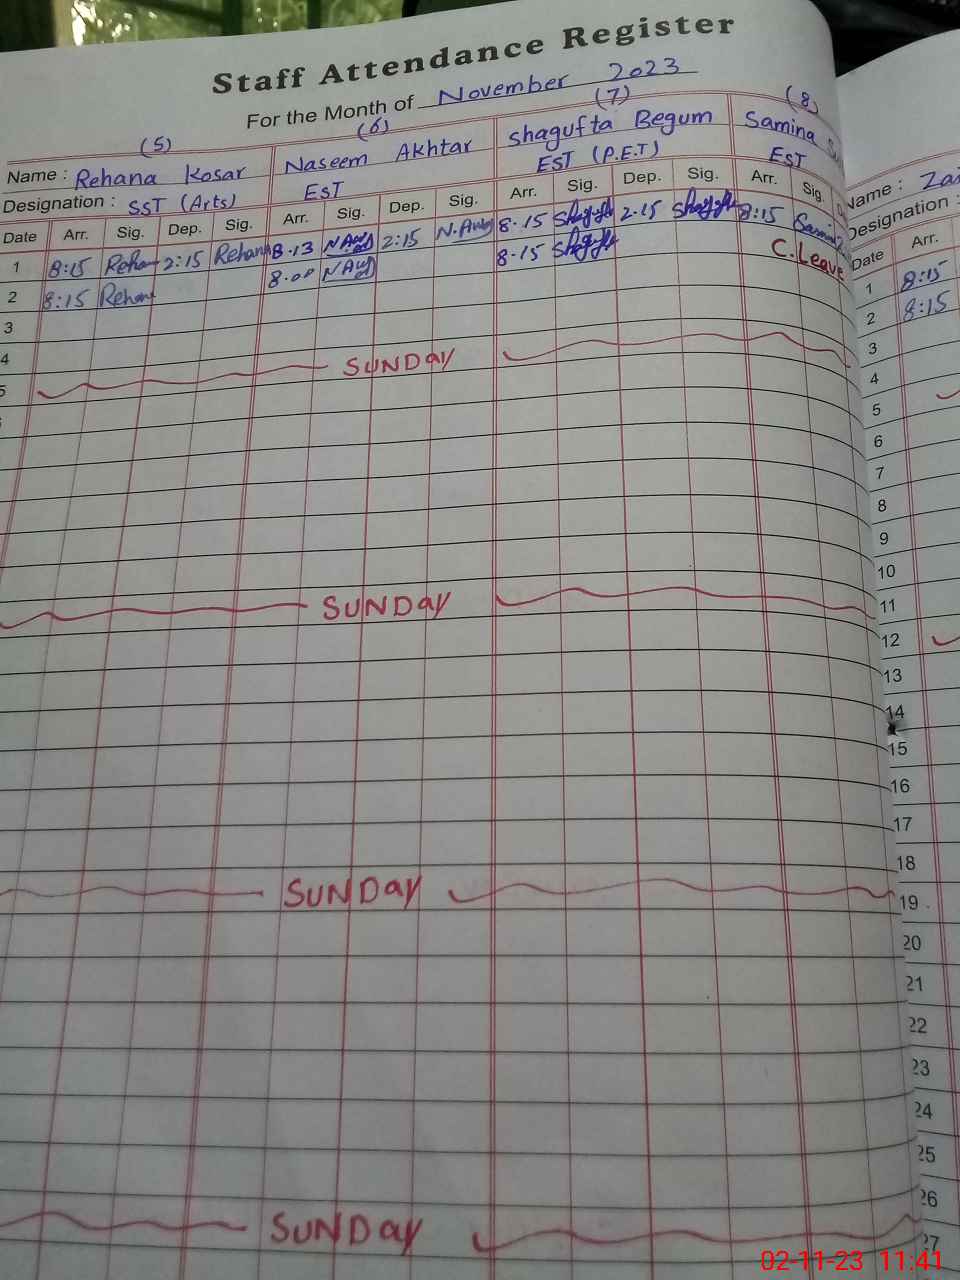 Staff Attendance Register
For the Month of November 2023
(5) (6) (7) (8)
Name : Rehana Kosar Naseem Akhtar Shagufta Begum Samina
Designation : SST (Arts) EST EST (P.E.T) EST
Date Arr. Sig. Dep. Sig. Arr. Sig. Dep. Sig. Arr. Sig. Dep. Sig. Arr. Sig.
1 8:15 Rehana 2:15 Rehana 8.13 2:15 8.15 2.15 8:15
2 8:15 Rehana 8.00 8.15 C.Leave
3
4
5 SUNDAY
SUNDAY
SUNDAY
SUNDAY
Name :
Designation :
Date Arr.
1 8:15
2 8:15
3
4
5
6
7
8
9
10
11
12
13
14
15
16
17
18
19
20
21
22
23
24
25
26
27
02-11-23 11:41